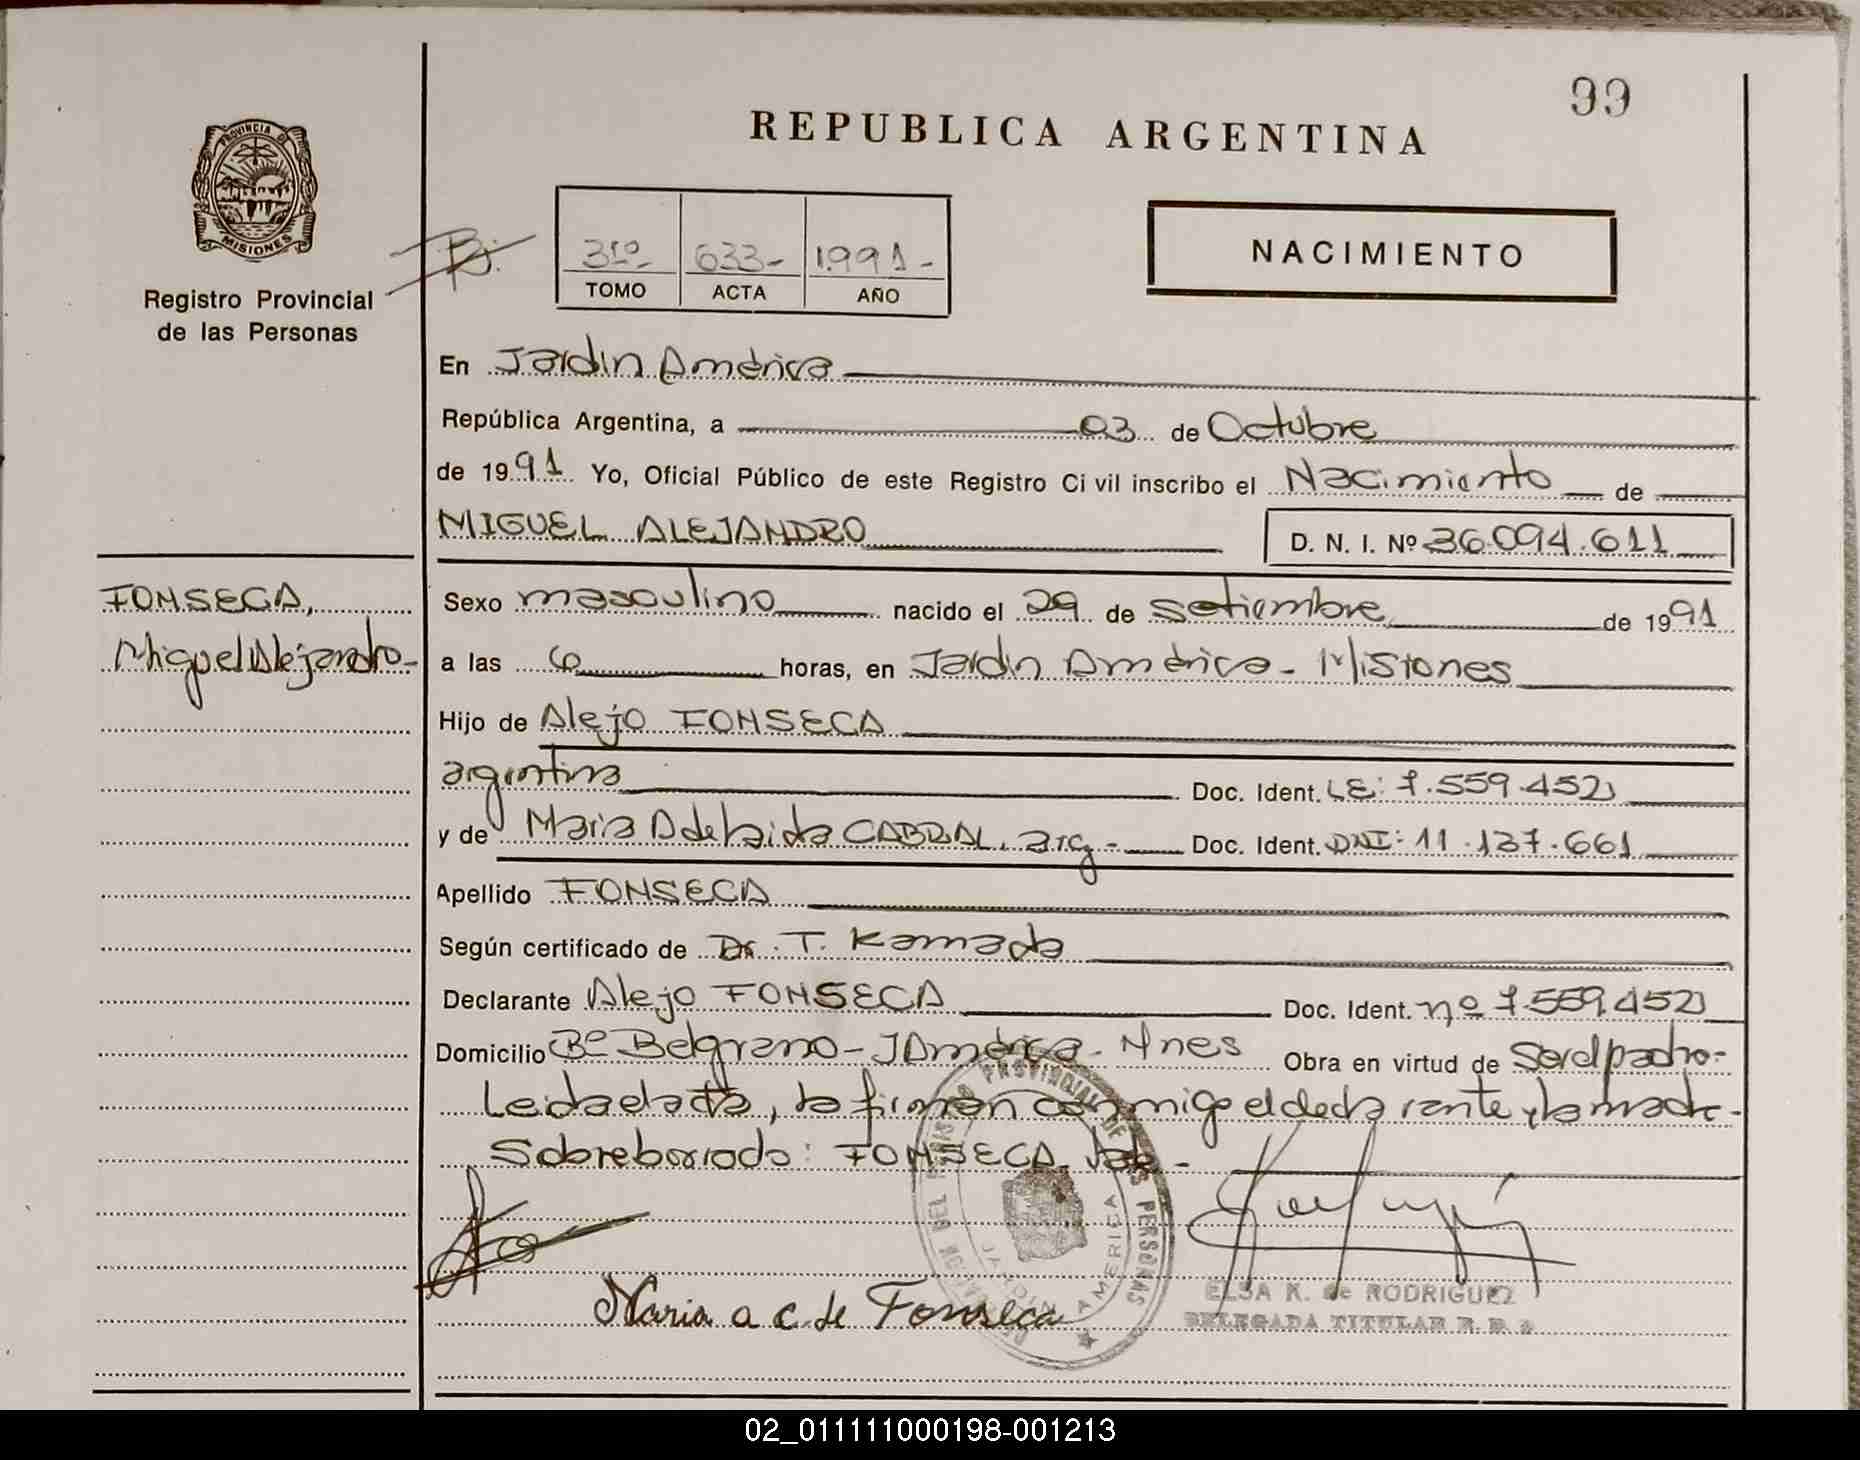 99
REPUBLICA ARGENTINA
PROVINCIA DE
MISIONES
Registro Provincial
de las Personas
3ro- 633- 1991-
TOMO ACTA AÑO
NACIMIENTO
En Jardin América
República Argentina, a 03 de Octubre
de 1991 Yo, Oficial Público de este Registro Civil inscribo el Nacimiento de
MIGUEL ALEJANDRO D. N. I. Nº 36.094.611
FONSECA,
Miguel Alejandro-
Sexo masculino nacido el 29 de Setiembre de 1991
a las 6 horas, en Jardin América - Misiones
Hijo de Alejo FONSECA
argentina Doc. Ident. LE: 7.559.452
y de Maria Adelaida CABRAL, arg - Doc. Ident. DNI: 11.137.661
Apellido FONSECA
Según certificado de Dr. T. Kamada
Declarante Alejo FONSECA Doc. Ident. nº 7.559.452
Domicilio Bº Belgrano - J América - Mnes Obra en virtud de Ser el padre-
Leida el acta, la firman conmigo el declarante y la madre-
Sobreborrado: FONSECA, Vale-
DELEGACION DEL REGISTRO PROVINCIAL DE LAS PERSONAS
JARDIN AMERICA
Maria a c. de Fonseca
ELSA K. de RODRIGUEZ
DELEGADA TITULAR R. P.
02_011111000198-001213